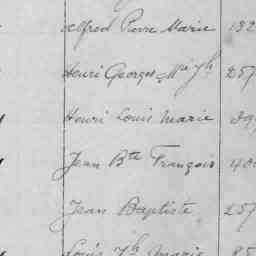 Alfred Pierre Marie 132
Henri Georges Mie Jh 257
Henri Louis Marie
Jean Bte François 40
Jean Baptiste 257
Louis Jh Marie 85